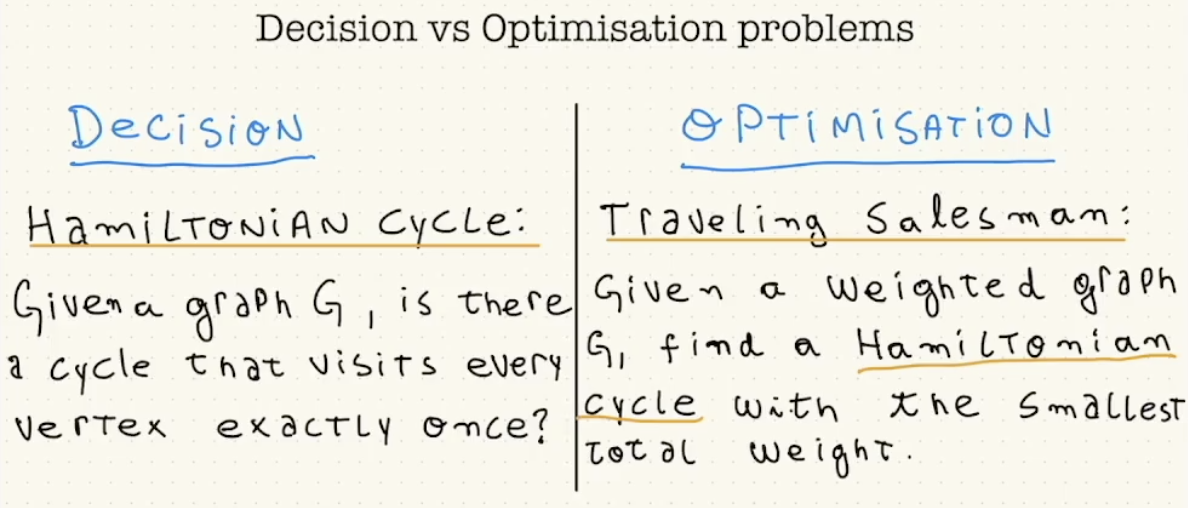 Decision vs Optimisation problems
Decision
Hamiltonian Cycle:
Given a graph G, is there
a cycle that visits every
vertex exactly once?
Optimisation
Traveling Salesman:
Given a weighted graph
G, find a Hamiltonian
cycle with the smallest
total weight.